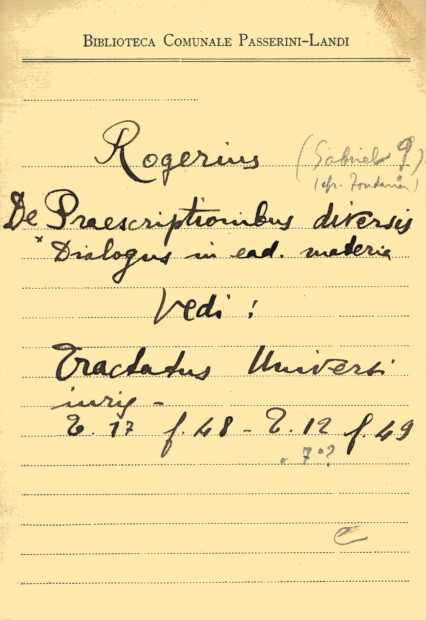 BIBLIOTECA COMUNALE PASSERINI-LANDI
Rogerius (Gabriele ?)
(cfr. Fontana)
De Praescriptionibus diversis
* Dialogus in ead. materia
Vedi:
Tractatus Universi
iuris -
T. 17 f. 48 - T. 12 f. 49
" 7°?